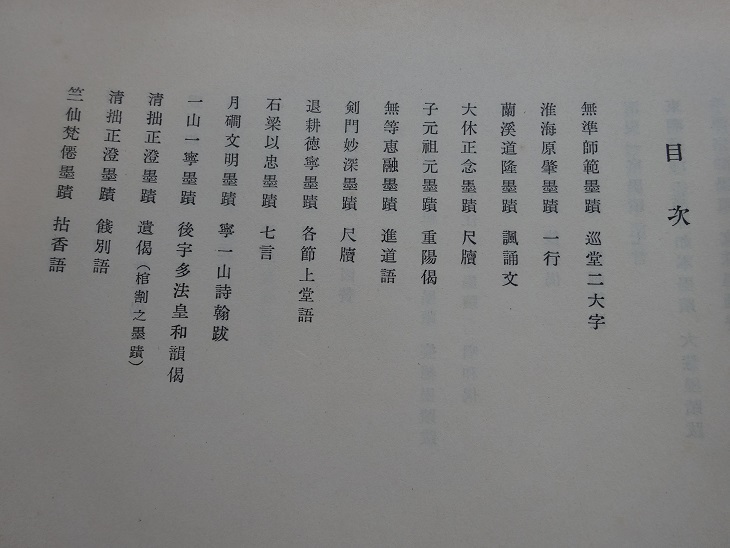 目次
無準師範墨蹟 巡堂二大字
淮海原肇墨蹟 一行
蘭溪道隆墨蹟 諷誦文
大休正念墨蹟 尺牘
子元祖元墨蹟 重陽偈
無等惠融墨蹟 進道語
劍門妙深墨蹟 尺牘
退耕德寧墨蹟 各節上堂語
石梁以忠墨蹟 七言
月磵文明墨蹟 寧一山詩翰跋
一山一寧墨蹟 後宇多法皇和韻偈
清拙正澄墨蹟 遺偈(棺割之墨蹟)
清拙正澄墨蹟 餞別語
竺仙梵僊墨蹟 拈香語